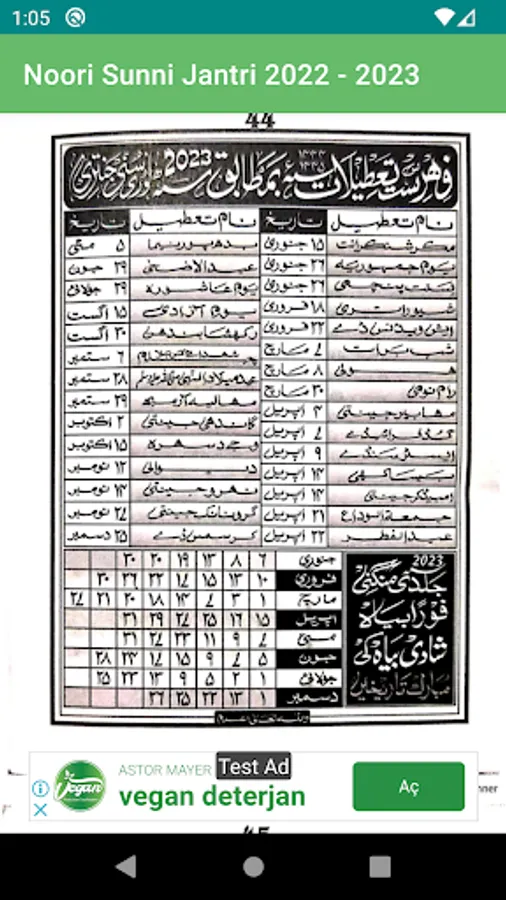 1:05
Noori Sunni Jantri 2022 - 2023
44
فہرست تعطیلات بمطابق 2023
نام تعطیل تاریخ نام تعطیل تاریخ
مکر شنکرانت ۱۵ جنوری بدھ پورنیما ۵ مئی
یوم جمہوریہ ۲۶ جنوری عیدالاضحیٰ ۲۹ جون
بسنت پنچمی ۲۶ جنوری یوم عاشورہ ۲۹ جولائی
شیوراتری ۱۸ فروری یوم آزادی ۱۵ اگست
۲۲ فروری رکھشا بندھن ۳۰ اگست
شب برات ۷ مارچ ۶ ستمبر
ہولی ۸ مارچ ۲۸ ستمبر
رام نومی ۳۰ مارچ ۲۹ ستمبر
مہابیر جینتی ۴ اپریل گاندھی جینتی ۲ اکتوبر
گڈ فرائیڈے ۷ اپریل وجے دسہرہ ۱۵ اکتوبر
ایسٹر سنڈے ۹ اپریل دیوالی ۱۲ نومبر
بیساکھی ۱۴ اپریل نہرو جینتی ۱۴ نومبر
امبیڈکر جینتی ۱۴ اپریل گرونانک جینتی ۲۷ نومبر
جمعۃ الوداع ۲۱ اپریل کرسمس ڈے ۲۵ دسمبر
عیدالفطر ۲۲ اپریل
2023
جلدی منگنی
فوراً بیاہ
شادی بیاہ کی
مبارک تاریخیں
جنوری ۶ ۸ ۱۳ ۱۹ ۲۰ ۳۰
فروری ۱۰ ۱۳ ۱۵ ۱۷ ۲۲ ۲۶ ۳۰
مارچ ۱ ۳ ۷ ۱۴ ۱۸ ۲۰ ۲۱ ۲۷
اپریل ۱۵ ۱۷ ۲۵ ۲۷ ۲۹ ۳۱
مئی ۷ ۹ ۱۱ ۲۲ ۲۷ ۳۱
جون ۵ ۷ ۹ ۱۵ ۱۷ ۲۳ ۲۸
جولائی ۱ ۲ ۵ ۹ ۱۳ ۲۳ ۲۵
دسمبر ۱ ۱۳ ۲۲ ۲۵ ۲۶
ASTOR MAYER
Test Ad
vegan deterjan
Vegan
Aç
45